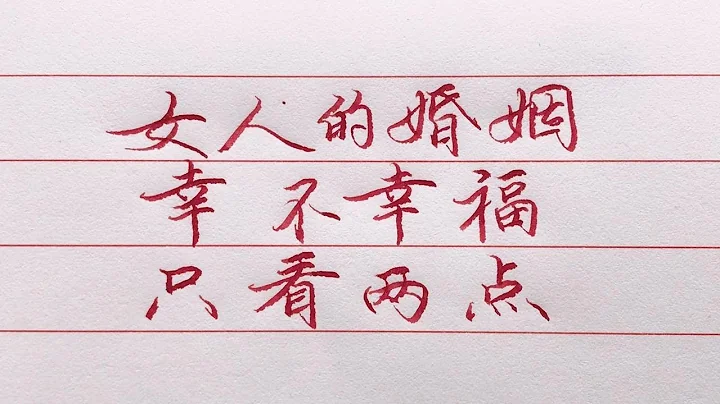 女人的婚姻
幸不幸福
只看两点